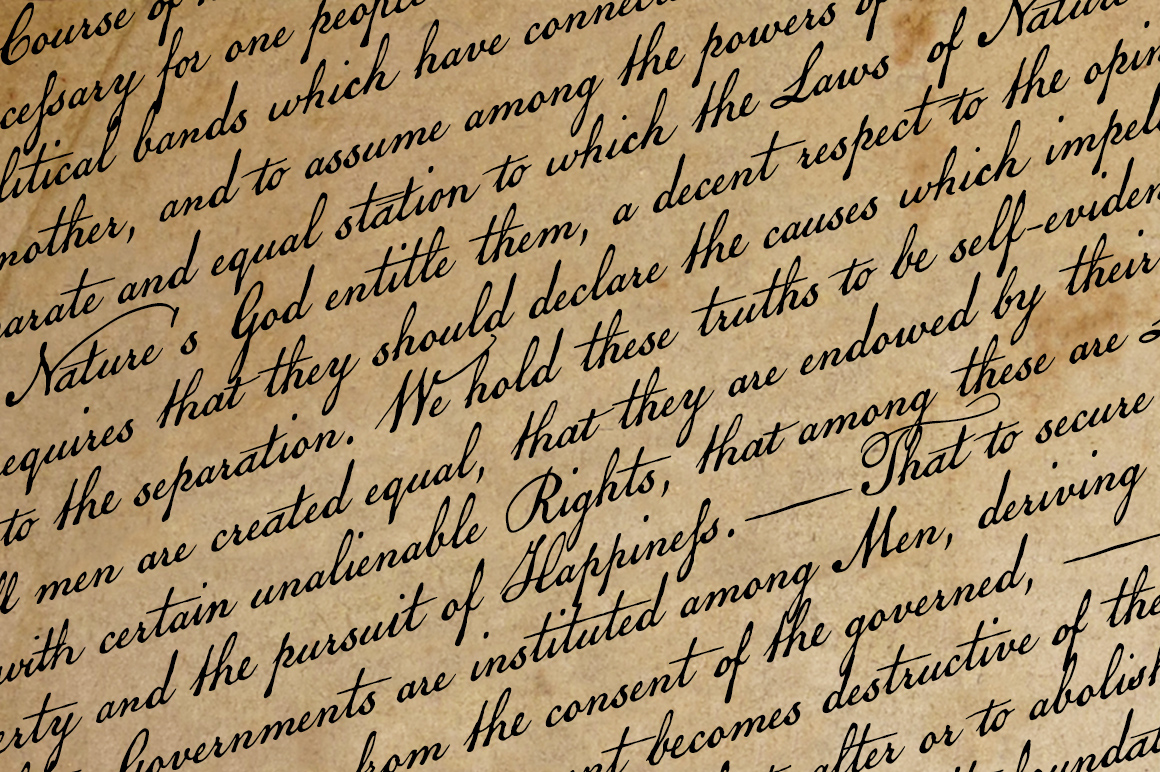 Course of
ceſsary for one people
litical bands which have connect
nother, and to assume among the powers of
parate and equal station to which the Laws of Nature
Nature's God entitle them, a decent respect to the opin
equires that they should declare the causes which impel
to the separation. We hold these truths to be self-eviden
ll men are created equal, that they are endowed by their
with certain unalienable Rights, that among these are L
erty and the pursuit of Happineſs. — That to secure
Governments are instituted among Men, deriving
from the consent of the governed, —
nt becomes destructive of the
alter or to abolish
foundat